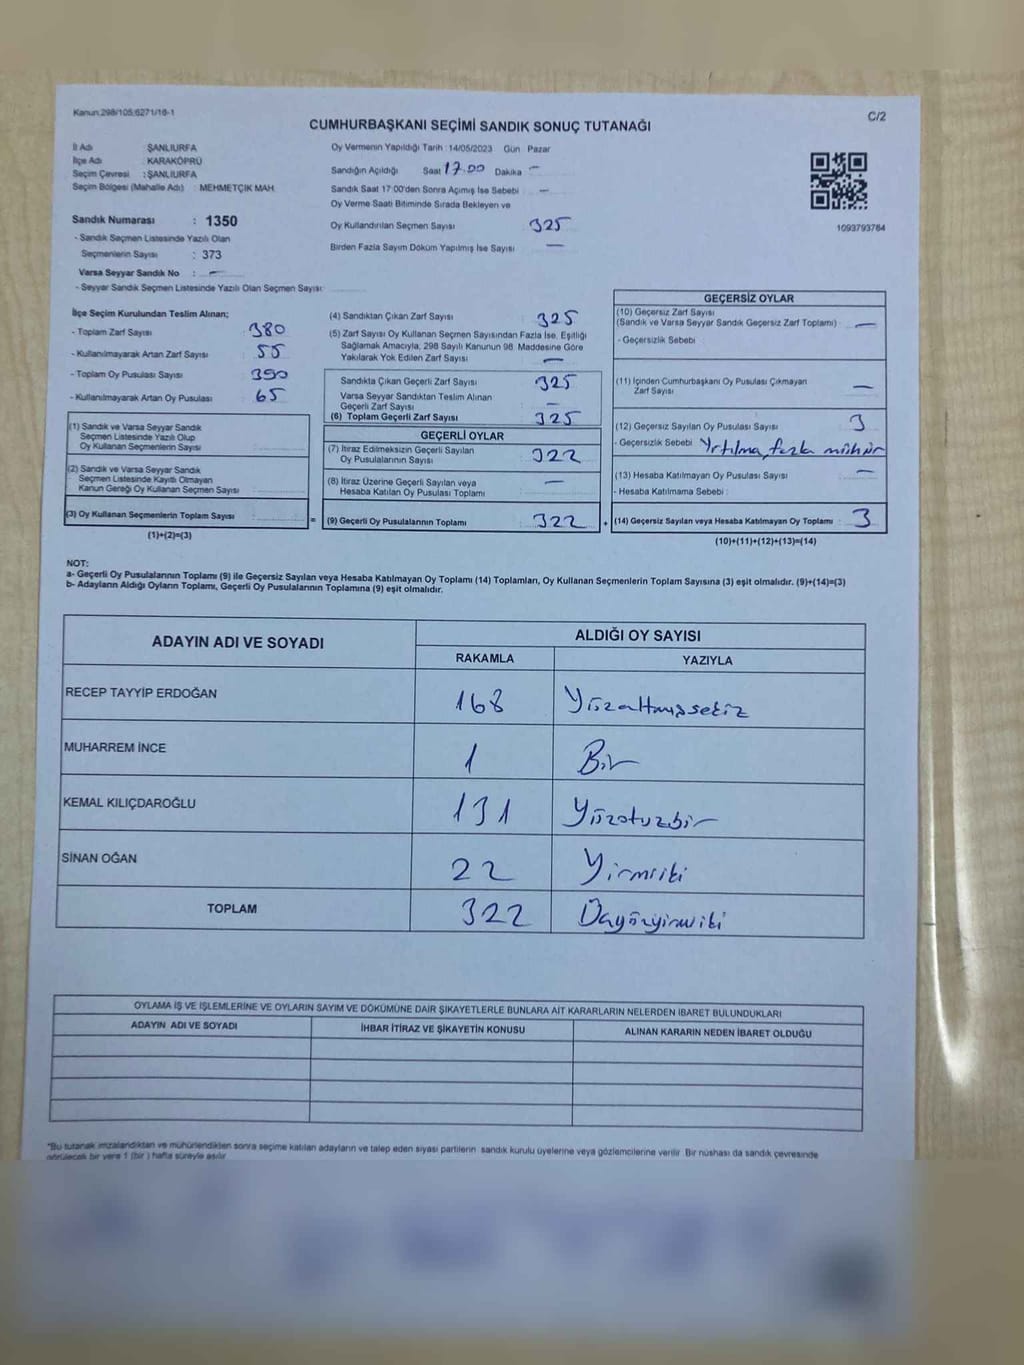 Kanun:298/105;6271/16-1
C/2
CUMHURBAŞKANI SEÇİMİ SANDIK SONUÇ TUTANAĞI
İl Adı : ŞANLIURFA
İlçe Adı : KARAKÖPRÜ
Seçim Çevresi : ŞANLIURFA
Seçim Bölgesi (Mahalle Adı) : MEHMETÇİK MAH.
Sandık Numarası : 1350
- Sandık Seçmen Listesinde Yazılı Olan
Seçmenlerin Sayısı : 373
Varsa Seyyar Sandık No : —
- Seyyar Sandık Seçmen Listesinde Yazılı Olan Seçmen Sayısı:
Oy Vermenin Yapıldığı Tarih : 14/05/2023 Gün Pazar
Sandığın Açıldığı Saat 17.00 Dakika —
Sandık Saat 17:00'den Sonra Açımış İse Sebebi : —
Oy Verme Saati Bitiminde Sırada Bekleyen ve
Oy Kullandırılan Seçmen Sayısı : 325
Birden Fazla Sayım Döküm Yapılmış İse Sayısı : —
1093793764
İlçe Seçim Kurulundan Teslim Alınan;
- Toplam Zarf Sayısı : 380
- Kullanılmayarak Artan Zarf Sayısı : 55
- Toplam Oy Pusulası Sayısı : 390
- Kullanılmayarak Artan Oy Pusulası : 65
(1) Sandık ve Varsa Seyyar Sandık
Seçmen Listesinde Yazılı Olup
Oy Kullanan Seçmenlerin Sayısı
(2) Sandık ve Varsa Seyyar Sandık
Seçmen Listesinde Kayıtlı Olmayan
Kanun Gereği Oy Kullanan Seçmen Sayısı
(3) Oy Kullanan Seçmenlerin Toplam Sayısı
(1)+(2)=(3)
(4) Sandıktan Çıkan Zarf Sayısı : 325
(5) Zarf Sayısı Oy Kullanan Seçmen Sayısından Fazla İse, Eşitliği
Sağlamak Amacıyla, 298 Sayılı Kanunun 98. Maddesine Göre
Yakılarak Yok Edilen Zarf Sayısı : —
Sandıkta Çıkan Geçerli Zarf Sayısı : 325
Varsa Seyyar Sandıktan Teslim Alınan
Geçerli Zarf Sayısı : —
(6) Toplam Geçerli Zarf Sayısı : 325
GEÇERLİ OYLAR
(7) İtiraz Edilmeksizin Geçerli Sayılan
Oy Pusulalarının Sayısı : 322
(8) İtiraz Üzerine Geçerli Sayılan veya
Hesaba Katılan Oy Pusulası Toplamı : —
= (9) Geçerli Oy Pusulalarının Toplamı : 322
GEÇERSİZ OYLAR
(10) Geçersiz Zarf Sayısı
(Sandık ve Varsa Seyyar Sandık Geçersiz Zarf Toplamı) : —
- Geçersizlik Sebebi :
(11) İçinden Cumhurbaşkanı Oy Pusulası Çıkmayan
Zarf Sayısı : —
(12) Geçersiz Sayılan Oy Pusulası Sayısı : 3
- Geçersizlik Sebebi : Yırtılma, fazla mühür
(13) Hesaba Katılmayan Oy Pusulası Sayısı : —
- Hesaba Katılmama Sebebi :
+ (14) Geçersiz Sayılan veya Hesaba Katılmayan Oy Toplamı : 3
(10)+(11)+(12)+(13)=(14)
NOT:
a- Geçerli Oy Pusulalarının Toplamı (9) ile Geçersiz Sayılan veya Hesaba Katılmayan Oy Toplamı (14) Toplamları, Oy Kullanan Seçmenlerin Toplam Sayısına (3) eşit olmalıdır. (9)+(14)=(3)
b- Adayların Aldığı Oyların Toplamı, Geçerli Oy Pusulalarının Toplamına (9) eşit olmalıdır.
ADAYIN ADI VE SOYADI ALDIĞI OY SAYISI
RAKAMLA YAZIYLA
RECEP TAYYİP ERDOĞAN 168 Yüzaltmışsekiz
MUHARREM İNCE 1 Bir
KEMAL KILIÇDAROĞLU 131 Yüzotuzbir
SİNAN OĞAN 22 Yirmiiki
TOPLAM 322 Üçyüzyirmiiki
OYLAMA İŞ VE İŞLEMLERİNE VE OYLARIN SAYIM VE DÖKÜMÜNE DAİR ŞİKAYETLERLE BUNLARA AİT KARARLARIN NELERDEN İBARET BULUNDUKLARI
ADAYIN ADI VE SOYADI İHBAR İTİRAZ VE ŞİKAYETİN KONUSU ALINAN KARARIN NEDEN İBARET OLDUĞU
*Bu tutanak imzalandıktan ve mühürlendikten sonra seçime katılan adayların ve talep eden siyasi partilerin sandık kurulu üyelerine veya gözlemcilerine verilir. Bir nüshası da sandık çevresinde
görülecek bir yere 1 (bir) hafta süreyle asılır